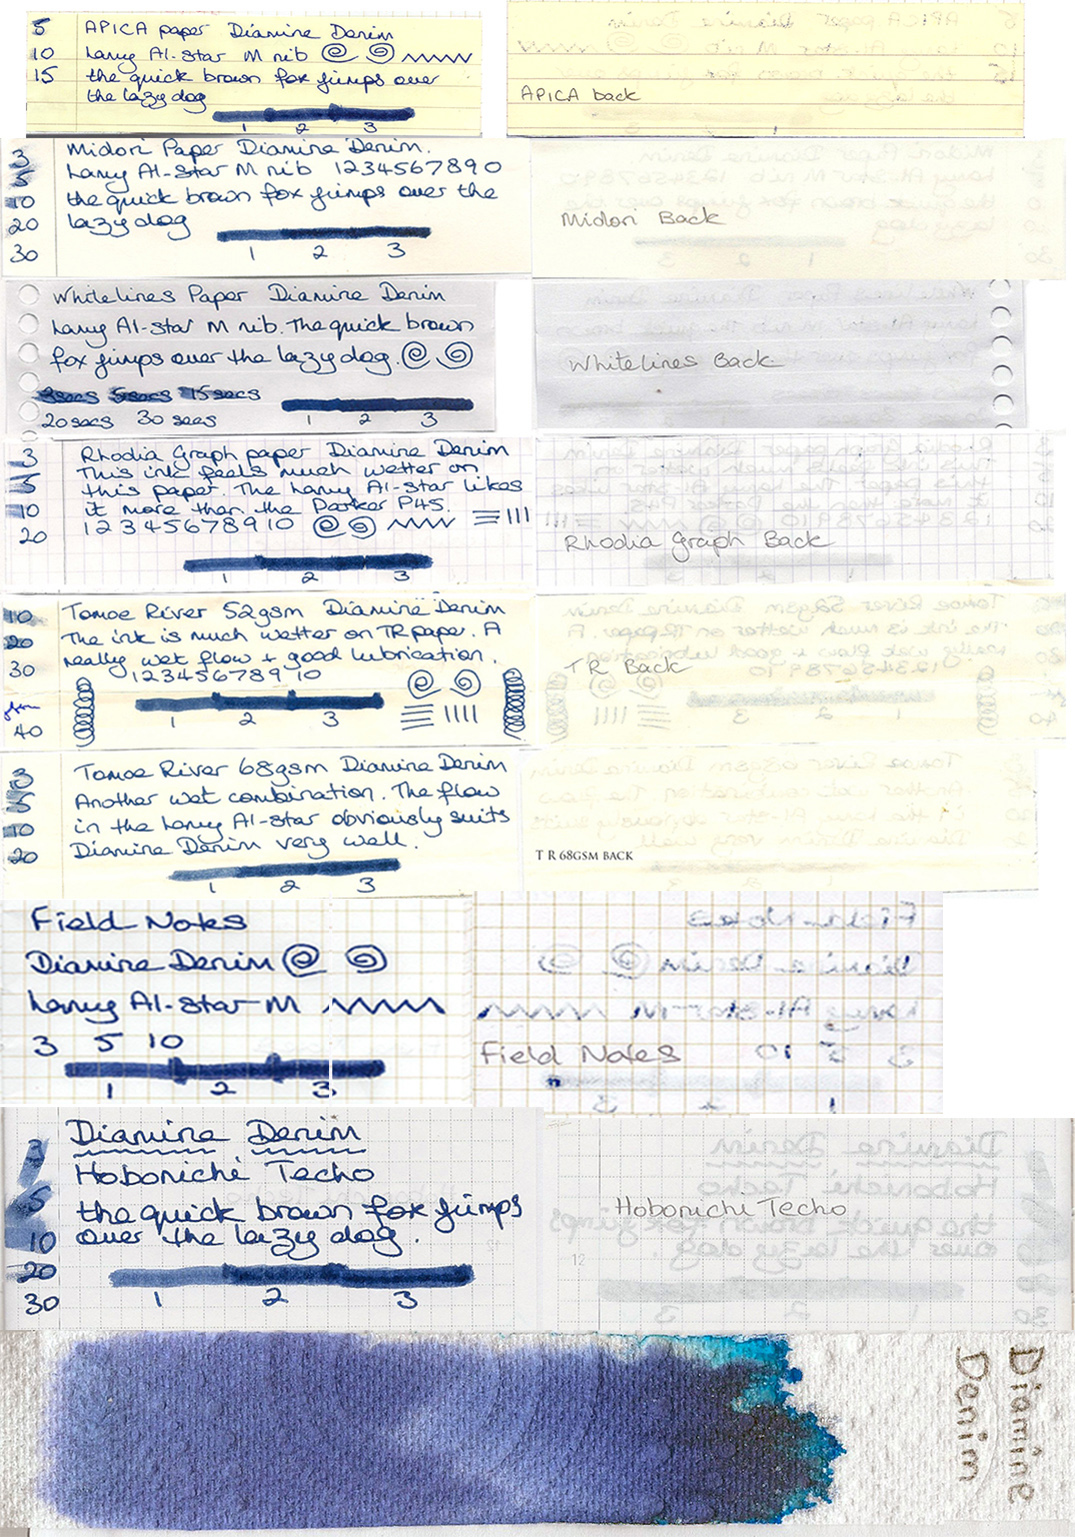 5 APICA paper Diamine Denim
10 Lamy Al-Star M nib
15 the quick brown fox jumps over
the lazy dog
1 2 3
APICA back
3 Midori Paper Diamine Denim.
5 Lamy Al-Star M nib 1234567890
10 the quick brown fox jumps over the
20 lazy dog
30 1 2 3
Midori Back
Whitelines Paper Diamine Denim
Lamy Al-Star M nib. The quick brown
fox jumps over the lazy dog.
3secs 5secs 15secs
20secs 30secs 1 2 3
Whitelines Back
3 Rhodia Graph paper Diamine Denim
This ink feels much wetter on
5 this paper. The Lamy Al-Star likes
10 it more than the Parker P45.
20 12345678910
1 2 3
Rhodia Graph Back
10 Tomoe River 52gsm Diamine Denim
20 The ink is much wetter on TR paper. A
30 really wet flow + good lubrication.
12345678910
40 1 2 3
TR Back
3 Tomoe River 68gsm Diamine Denim
5 Another wet combination. The flow
10 in the Lamy Al-Star obviously suits
20 Diamine Denim very well.
1 2 3
T R 68GSM BACK
Field Notes
Diamine Denim
Lamy Al-Star M
3 5 10
1 2 3
Field Notes
Diamine Denim
3 Hobonichi Techo
5 the quick brown fox jumps
10 over the lazy dog.
20
30 1 2 3
Hobonichi Techo
12
Diamine
Denim